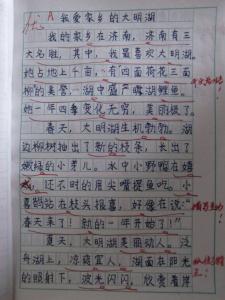 优 A
我爱家乡的大明湖
我的家乡在济南，济南有三
大名胜，其中，我最喜欢大明湖。
她占地上千亩，有四面荷花三面
柳的美誉，湖中盛产露湖鲤鱼。
她一年四季变化无穷，美丽极了。
春天，大明湖生机勃勃。湖
边柳树抽出了新的枝条，长出了
嫩绿的小芽儿。水中小野鸭在嬉
戏，还不时的用尖嘴捉鱼吃。小
喜鹊站在枝头报喜，好像在说："
春天来了！新的一年开始了！"
夏天，大明湖美丽动人。泛
舟湖上，凉爽宜人，湖面在阳光
的照射下，波光闪闪，欣赏着岸